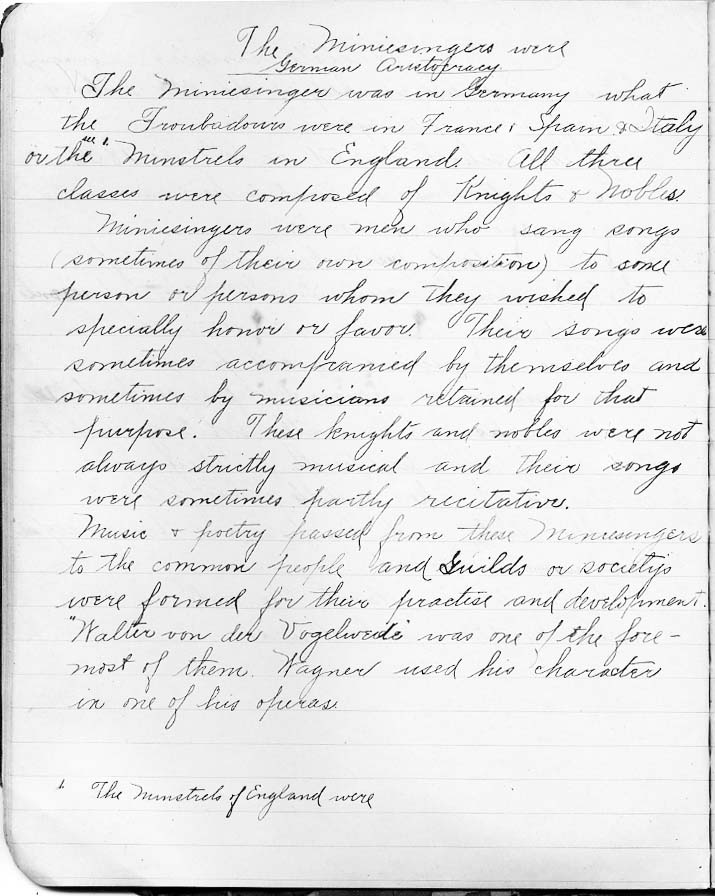 The Miniesingers were
German Aristocracy
The Miniesinger was in Germany what
the Troubadours were in France, Spain & Italy
or the " 1. Minstrels in England. All three
classes were composed of Knights & Nobles.
Miniesingers were men who sang songs
(sometimes of their own composition) to some
person or persons whom they wished to
specially honor or favor. Their songs were
sometimes accompanied by themselves and
sometimes by musicians retained for that
purpose. These knights and nobles were not
always strictly musical and their songs
were sometimes partly recitative.
Music & poetry passed from these Miniesingers
to the common people and Guilds or societys
were formed for their practise and development.
"Walter von der Vogelweide was one of the fore-
most of them. Wagner used his character
in one of his operas.
1. The Minstrels of England were